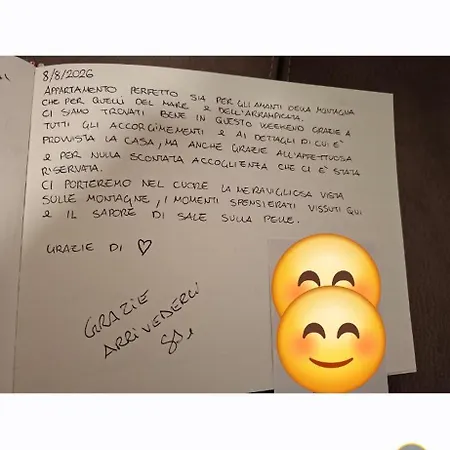 8/8/2026
APPARTAMENTO PERFETTO SIA PER GLI AMANTI DELLA MONTAGNA
CHE PER QUELLI DEL MARE E DELL'ARRAMPICATA.
CI SIAMO TROVATI BENE IN QUESTO WEEKEND GRAZIE A
TUTTI GLI ACCORGIMENTI E AI DETTAGLI DI CUI E'
PROVVISTA LA CASA, MA ANCHE GRAZIE ALL'AFFETTUOSA
E PER NULLA SCONTATA ACCOGLIENZA CHE CI E' STATA
RISERVATA.
CI PORTEREMO NEL CUORE LA MERAVIGLIOSA VISTA
SULLE MONTAGNE, I MOMENTI SPENSIERATI VISSUTI QUI
E IL SAPORE DI SALE SULLA PELLE.
GRAZIE DI ♡
GRAZIE
ARRIVEDERCI